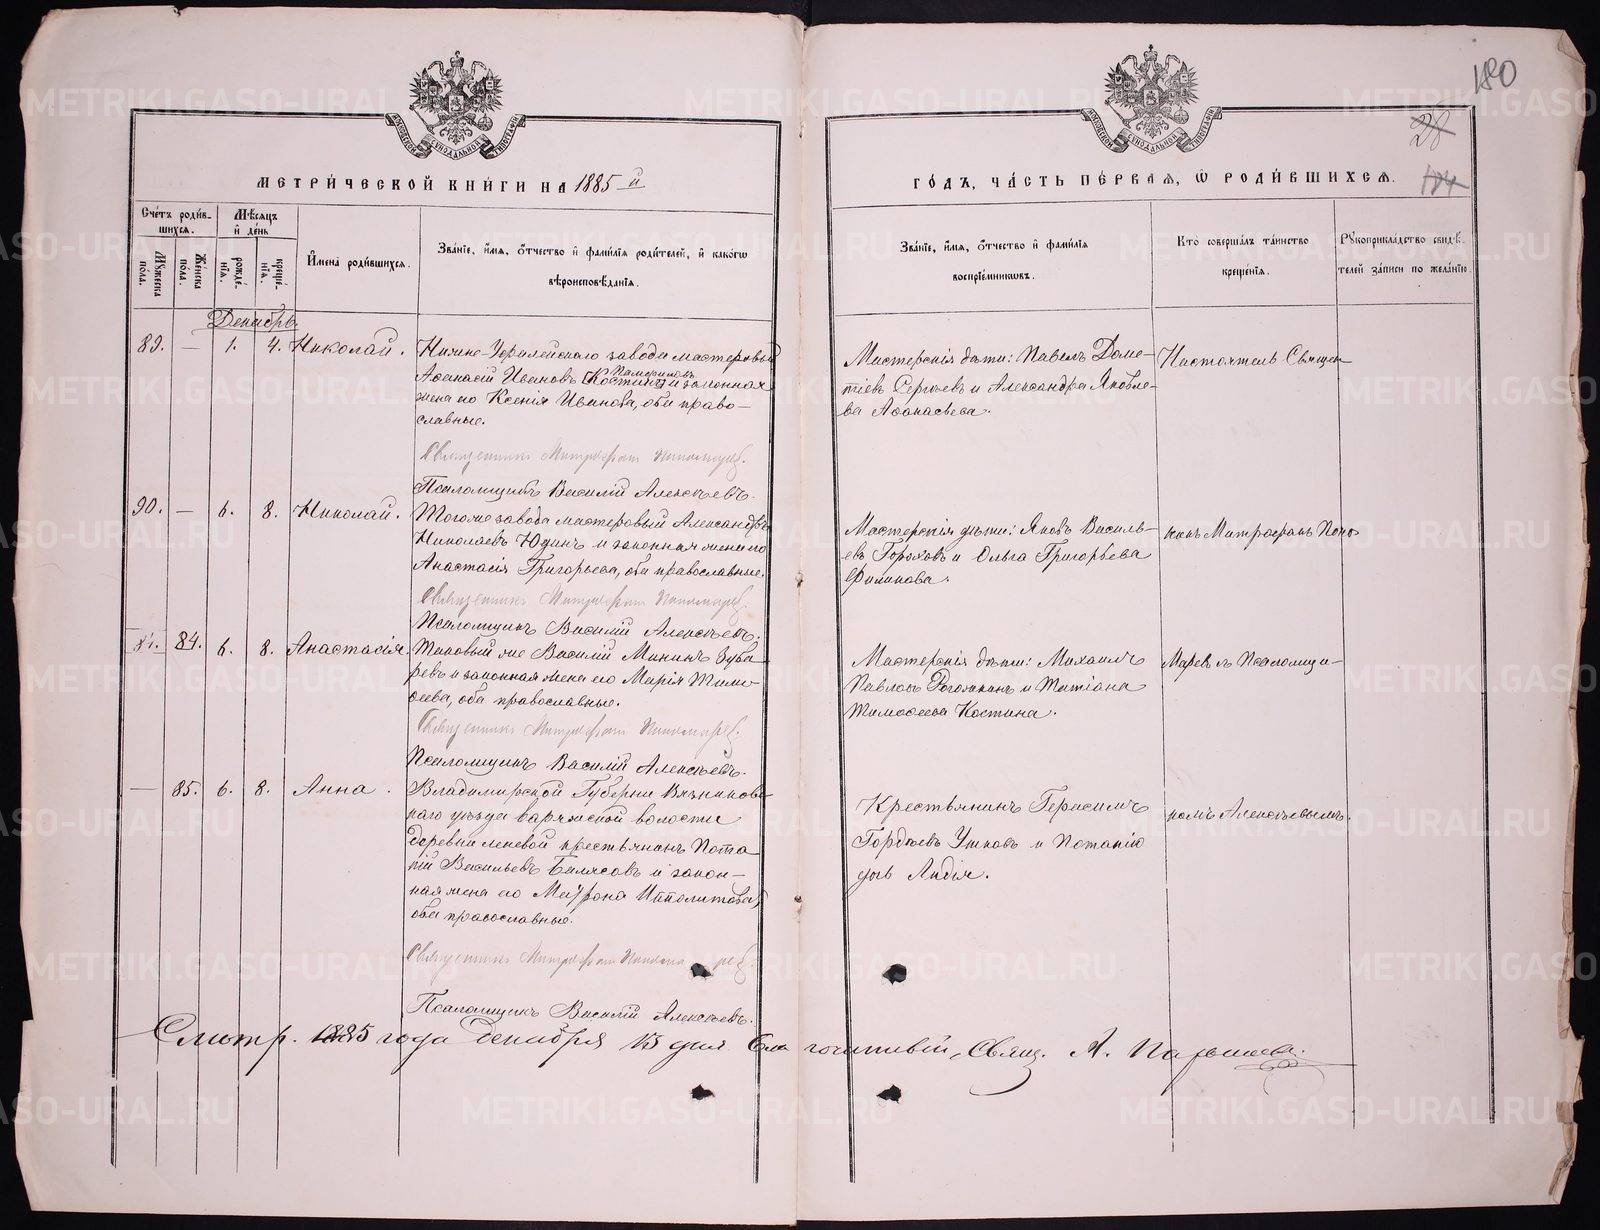 180
28
МЕТРИ́ЧЕСКОЙ КНИ́ГИ НА 1885 й
ГО́ДЪ, ЧА́СТЬ ПЕ́РВАЯ, Ѡ РОДИ́ВШИХСЯ.
Сче́тъ роди́в-
шихся.
Мѣ́сяцъ
и де́нь
Мꙋ́жеска по́ла.
Же́нска по́ла.
рожде́-
нїя.
креще́-
нїя.
И́мена роди́вшихся.
Зва́нїе, и́мя, ѻ́тчество и фами́лїя роди́телей, и како́гѡ
вѣроисповѣ́данїя.
Зва́нїе, и́мя, ѻ́тчество и фами́лїя
воспрїе́мникѡвъ.
Кто̀ соверша́лъ та́инство
креще́нїя.
Рꙋкоприкла́дство свидѣ́-
телей за́писи по жела́нїю.
Декабрь.
89. — 1. 4. Николай.
Нижне-Уфалейскаго завода мастеровый
Аѳанасій Ивановъ [Костинъ] и законная
жена его Ксенія Иванова, оба право-
славные.
Священникъ Митрофанъ Пономаревъ.
Псаломщикъ Василій Алексѣевъ.
Мастерскія дѣти: Павелъ Доме-
тіевъ Сергѣевъ и Александра Яковле-
ва Аѳанасьева.
Настоятель Священ-
90. — 6. 8. Николай.
Тогоже завода мастеровый Александръ
Николаевъ Юдинъ и законная жена его
Анастасія Григорьева, оба православные.
Священникъ Митрофанъ Пономаревъ.
Псаломщикъ Василій Алексѣевъ.
Мастерскія дѣти: Яковъ Василь-
евъ Гороховъ и Ольга Григорьева
Филикова.
никъ Митрофанъ Поно-
84. 6. 8. Анастасія.
Таковый же Василій Мининъ Зуба-
ревъ и законная жена его Марія Тимо-
ѳеева, оба православные.
Священникъ Митрофанъ Пономаревъ.
Псаломщикъ Василій Алексѣевъ.
Мастерскія дѣти: Михаилъ
Павловъ Рогожкинъ и Татіана
Тимоѳеева Костина.
Маревъ съ Псаломщи-
— 85. 6. 8. Анна.
Владимирской Губерніи Вязников-
скаго уѣзда варежской волости
деревни леневой крестьянинъ Пота-
пій Васильевъ Балясовъ и закон-
ная жена его Матрона Ипполитова,
оба православные.
Священникъ Митрофанъ Пономаревъ.
Псаломщикъ Василій Алексѣевъ.
Крестьянинъ Герасимъ
Гордѣевъ Ушковъ и Потапію
дщь Лидія.
комъ Алексѣевымъ.
Смотр. 1885 года декабря 15 дня Благочинный, Свящ. А.
METRIKI.GASO-URAL.RU